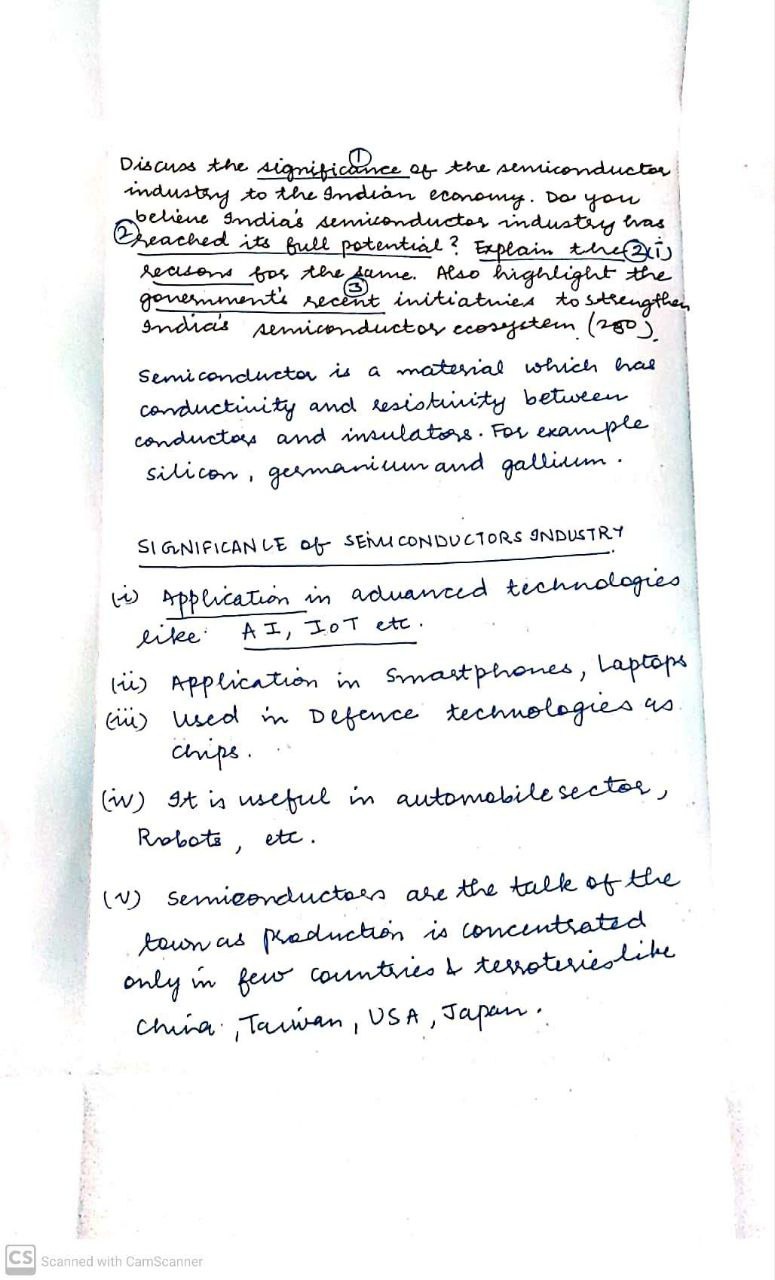 Discuss the significance of the semiconductor
①
industry to the Indian economy. Do you
believe India's semiconductor industry has
② reached its full potential? Explain the ②(i)
reasons for the same. Also highlight the
③
government's recent initiatives to strengthen
India's semiconductor ecosystem (250).
Semiconductor is a material which has
conductivity and resistivity between
conductors and insulators. For example
silicon, germanium and gallium.
SIGNIFICANCE of SEMICONDUCTORS INDUSTRY
(i) Application in advanced technologies
like AI, IoT etc.
(ii) Application in Smartphones, Laptops
(iii) Used in Defence technologies as
chips.
(iv) It is useful in automobile sector,
Robots, etc.
(v) Semiconductors are the talk of the
town as production is concentrated
only in few countries & terroteries like
China, Taiwan, USA, Japan.
CS Scanned with CamScanner